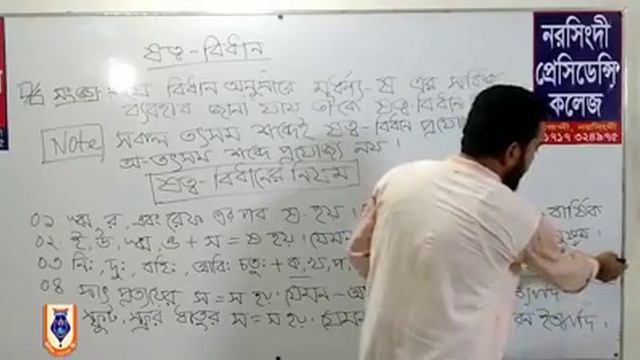 ষত্ব-বিধান
সংজ্ঞাঃ যে বিধান অনুসারে মূর্ধন্য-ষ এর সঠিক
ব্যবহার জানা যায় তাকে ষত্ব-বিধান
Note সকল তৎসম শব্দেই ষত্ব-বিধান
অ-তৎসম শব্দে প্রযোজ্য নয়।
ষত্ব-বিধানের নিয়ম
০১ ঋ, র, এবং রেফ এর পর ষ-হয়। বার্ষিক
০২. ই, উ, ঋ, ও + স = ষ হয়। যেমন
০৩ নিঃ, দুঃ, বহিঃ, আবিঃ চতুঃ + ক, খ, প,
০৪ সাৎ প্রত্যয়ের স = স হয়। যেমন- ইত্যাদি
স্ফুট, স্ফুর ধাতুর স = স হয়। যেমন ইত্যাদি
নরসিংদী
প্রেসিডেন্সি
কলেজ
নরসিংদী
১৭১৭ ৩২৪৯৭৫